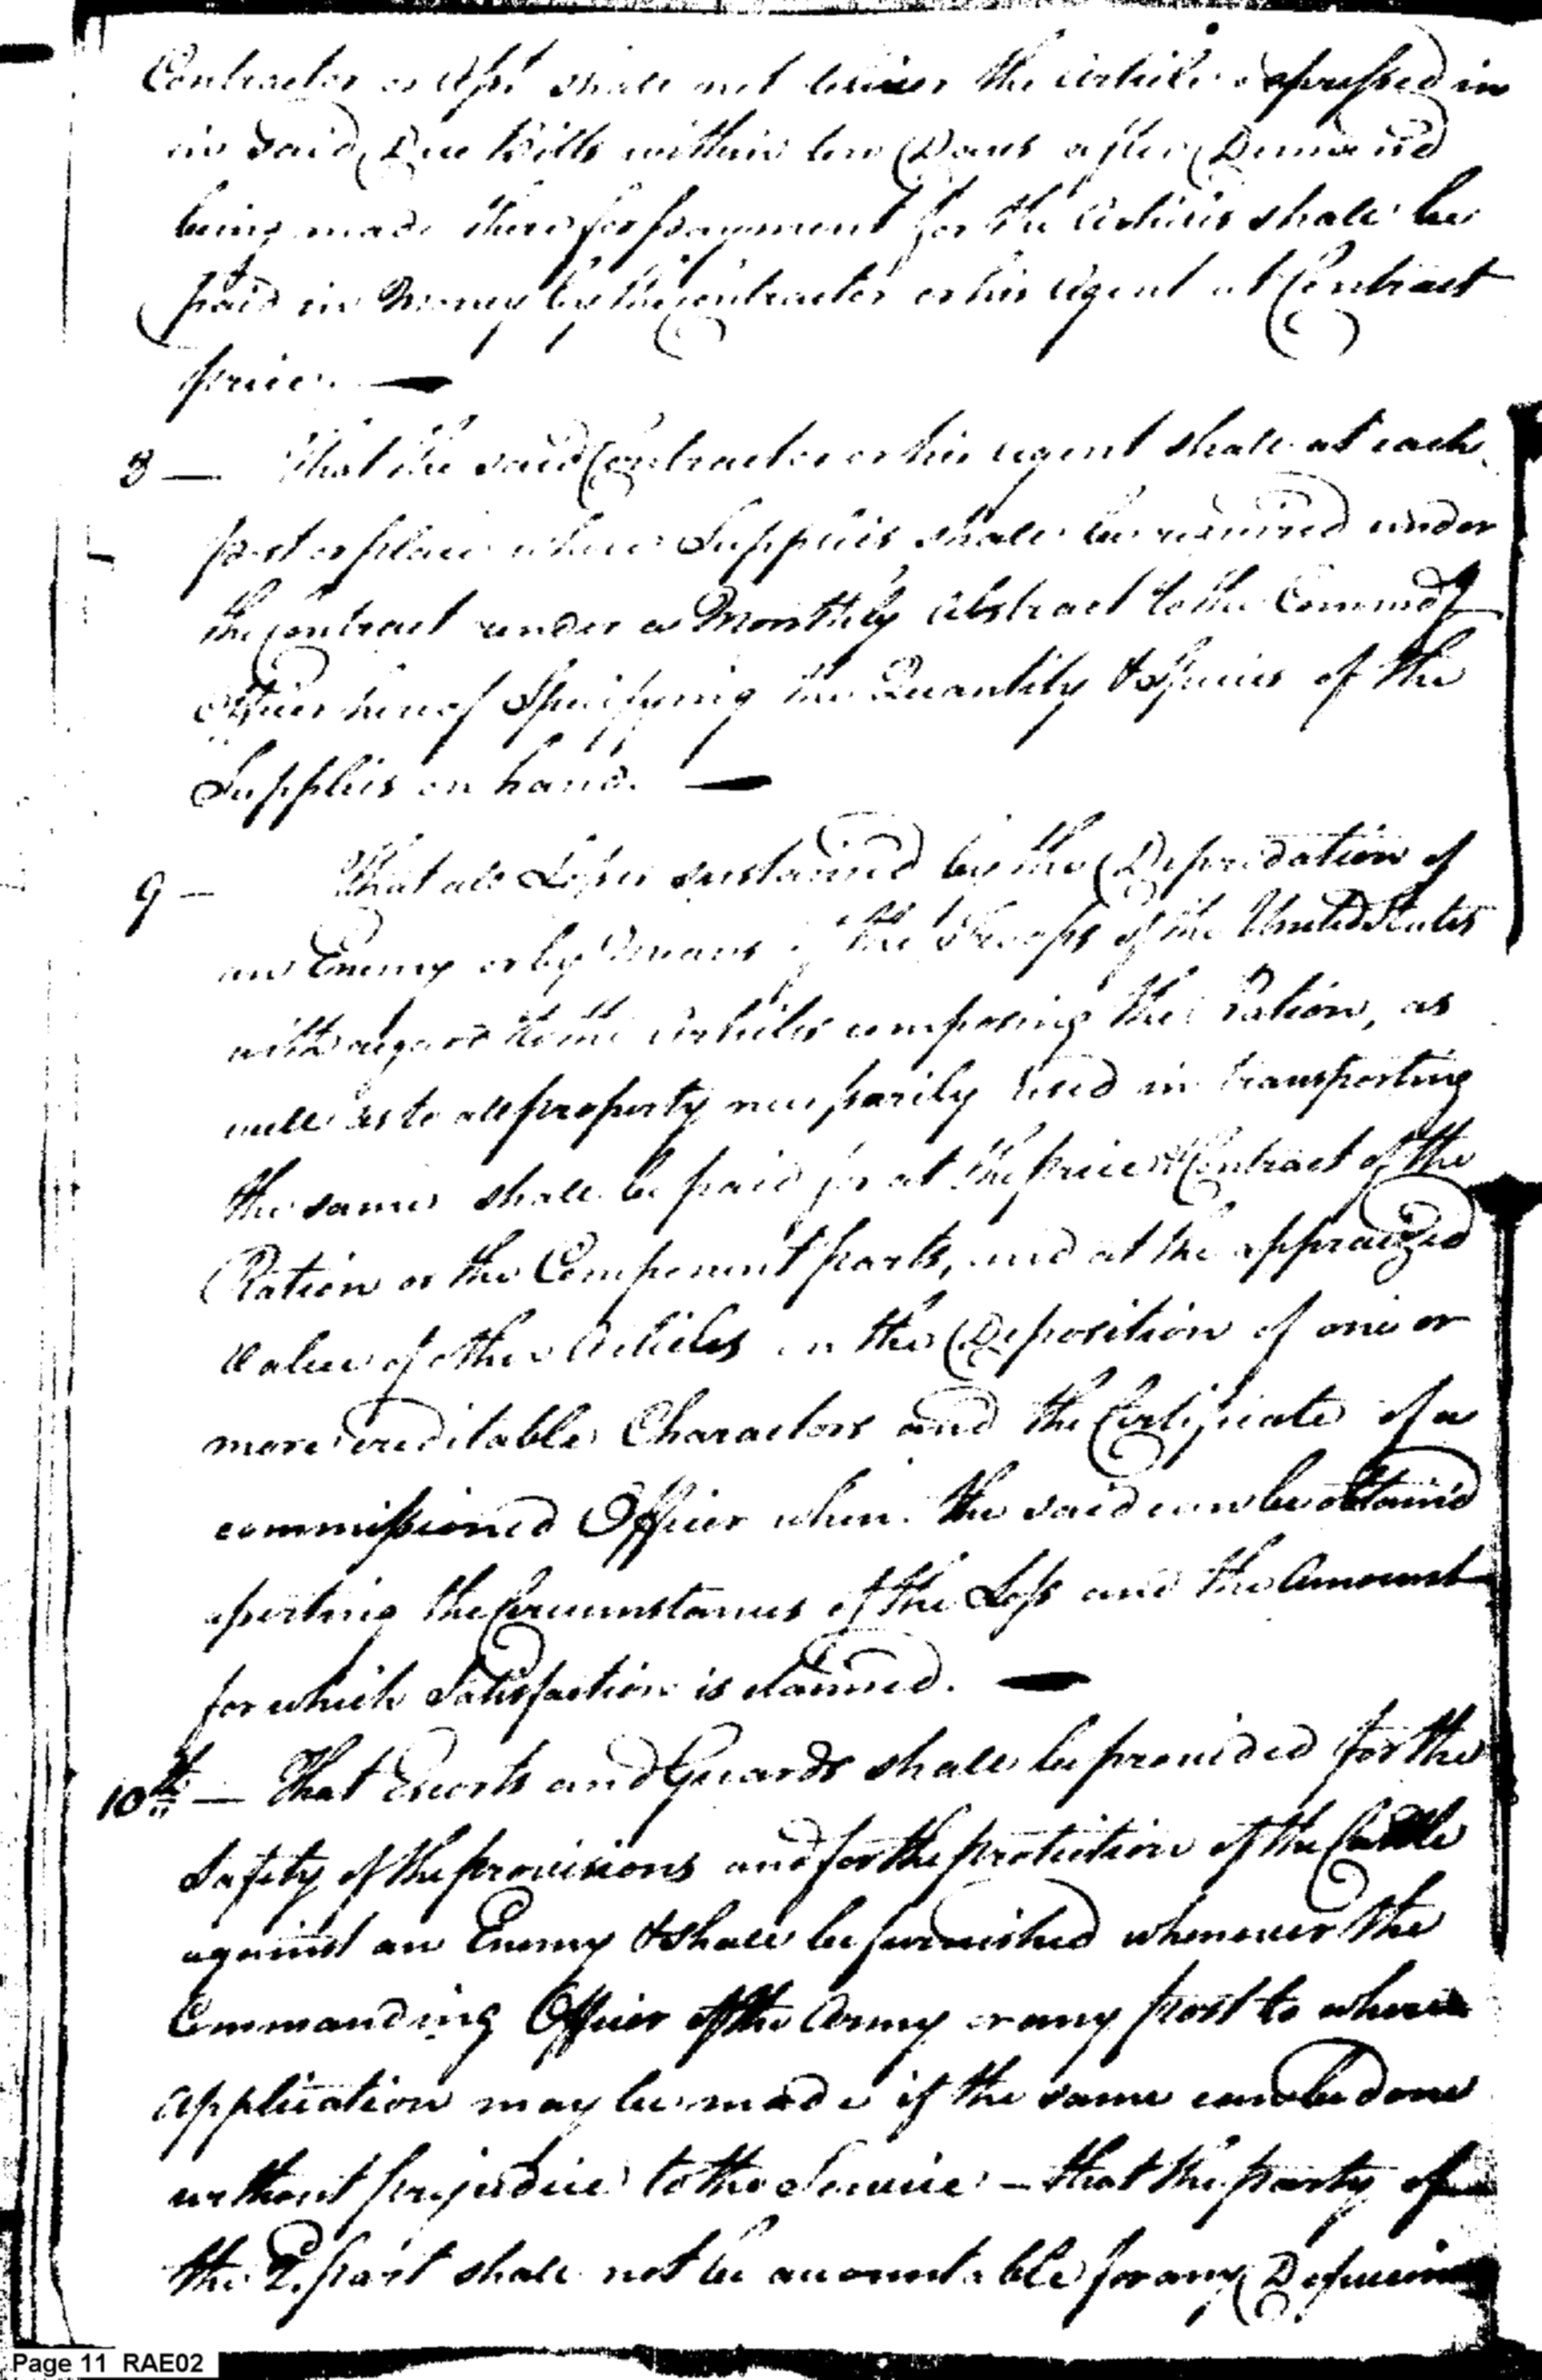 Contractor or Agt shall not deliver the Articles expressed in
in said Due Bills within ten Days after Demand
being made therefor payment for the Articles shall be
paid in Money by the Contractor or his Agent at Contract
price. —
8 — That the said Contractor or his agent shall at each
post or place where Supplies shall be required under
the Contract render a Monthly Abstract to the Commdg
Officer hereof Specifying the Quantity & Species of the
Supplies on hand. —
9 — That all Losses sustained by the Depredation of
an Enemy or by Means of the Troops of the United States
with regard to the Articles composing the Ration, as
well as to all property necessarily used in transporting
the same shall be paid for at the price Contract of the
Ration or the Component parts, and at the appraized
Value of other Articles on the Deposition of one or
more creditable Charactors and the Certificate of a
commissioned Officer when the said can be obtained
asserting the Circumstances of the Loss and the Amount
for which Satisfaction is claimed. —
10th — That Escorts and Guards shall be provided for the
Safety of the provisions and for the protection of the Cattle
against an Enemy & shall be furnished whenever the
Commanding Officer of the Army or any post to whom
Application may be made if the same can be done
without prejudice to the Service — that the party of
the 2. part shall not be accountable for any
Page 11 RAE02